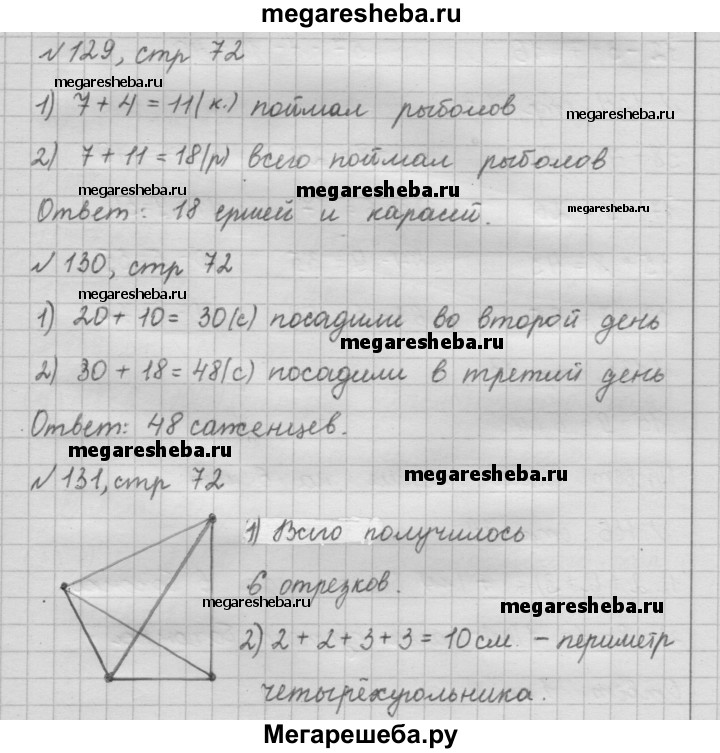 megaresheba.ru
№129, стр 72
megaresheba.ru
1) 7 + 4 = 11(к.) поймал рыболов
megaresheba.ru
2) 7 + 11 = 18(р) всего поймал рыболов
megaresheba.ru
Ответ: 18 ершей и карасей.
megaresheba.ru
№130, стр 72
megaresheba.ru
1) 20 + 10 = 30(с) посадили во второй день
megaresheba.ru
2) 30 + 18 = 48(с) посадили в третий день
Ответ: 48 саженцев.
megaresheba.ru
megaresheba.ru
№131, стр 72
1) Всего получилось
6 отрезков.
megaresheba.ru
megaresheba.ru
2) 2 + 2 + 3 + 3 = 10 см. – периметр
четырёхугольника.
Мегарешеба.ру